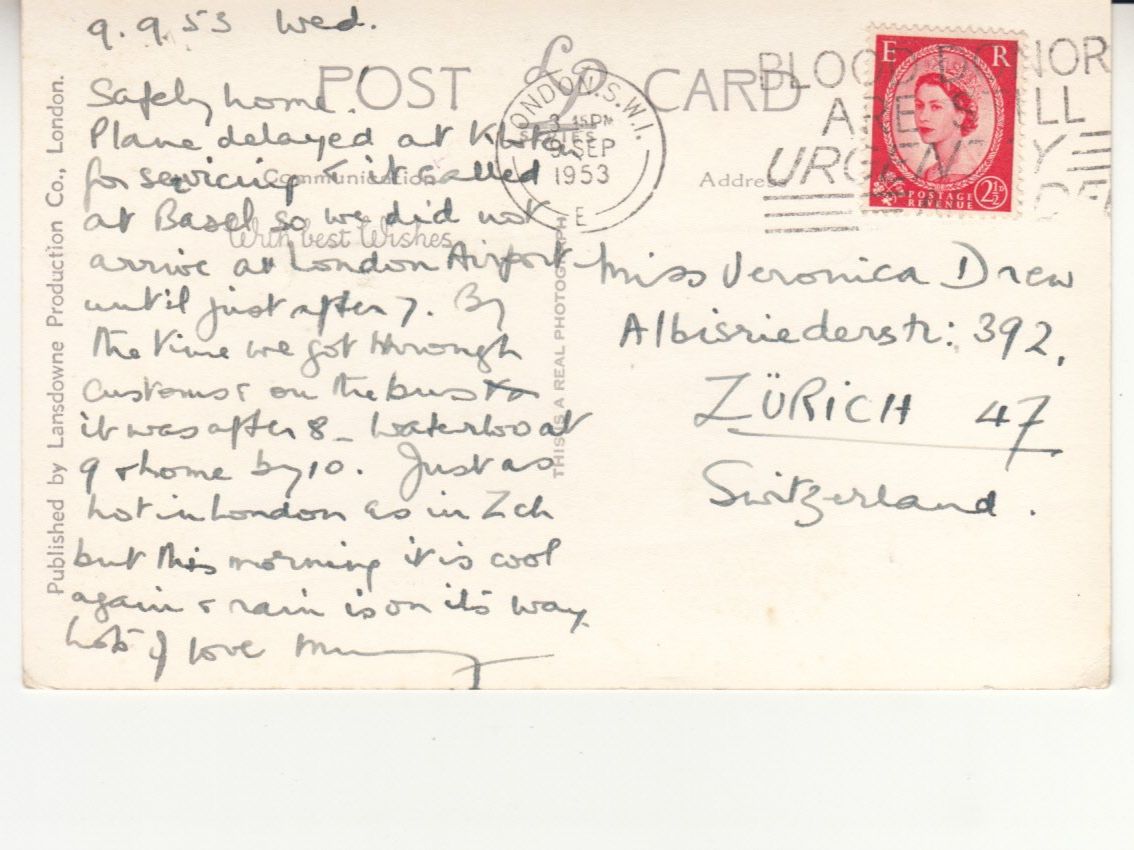 9.9.53 Wed.
POST CARD
Safely home.
Plane delayed at Kloten
for servicing & it called
at Basel so we did not
arrive at London Airport
until just after 7. By
the time we got through
customs & on the bus
it was after 8 _ Waterloo at
9 & home by 10. Just as
hot in London as in Zch
but this morning it is cool
again & rain is on its way.
Lots of love
Communication
With best Wishes
Address
Miss Veronica Drew
Albisriederstr: 392,
ZÜRICH 47
Switzerland.
LONDON.S.W.1.
3 15 PM
9 SEP
1953
E
BLOOD DONORS
ARE STILL
URGENTLY
E R
POSTAGE
REVENUE
2½D
THIS IS A REAL PHOTOGRAPH
Published by Lansdowne Production Co., London.